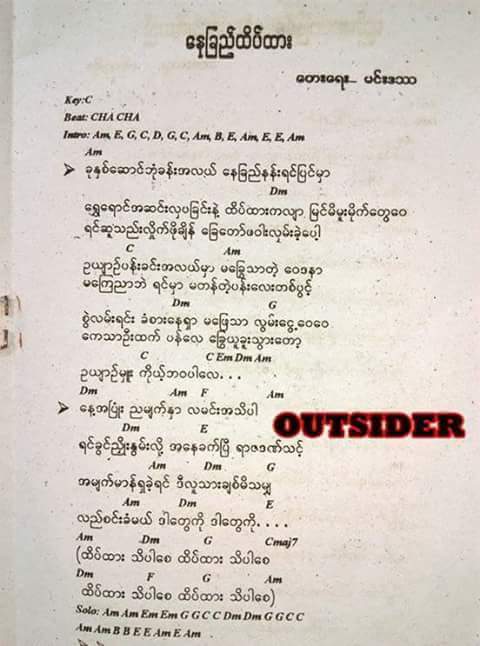 နေခြည်ထိပ်ထား
တေးရေး... မင်းဒဿ
Key:C
Beat: CHA CHA
Intro: Am, E, G, C, D, G, C, Am, B, E, Am, E, E, Am
Am
➤ ခုနှစ်ဆောင်ဘုံခန်းအလယ် နေခြည်နန်းရင်ပြင်မှာ
Dm
ရွှေရောင်အဆင်းလှပခြင်းနဲ့ ထိပ်ထားကလျာ မြင်မိမူးမိုက်တွေဝေ
ရင်ဆူသည်းလှိုက်ဖိုချိန် ခြေတော်ဖဝါးလှမ်းခဲ့ပေါ့
C Am
ဥယျာဉ်ပန်းခင်းအလယ်မှာ မခြွေသာတဲ့ ဝေဒနာ
မကြေညာဘဲ ရင်မှာ မတန်တဲ့ပန်းလေးတစ်ပွင့်
Dm G
စွဲလမ်းရင်း ခံစားနေရှာ မဖြေသာ လွမ်းငွေ့ဝေဝေ
ကေသာဦးထက် ပန်လေ ခြွေယူခူးသွားတော့
C C Em Dm Am
ဥယျာဉ်မှူး ကိုယ့်ဘဝပါလေ. . .
Dm Am F Am
➤ နေ့အပြုံး ညမျက်နှာ လမင်းအသိပါ
OUTSIDER
Dm E
ရင်ခွင်ညှိုးနွမ်းလို့ အနေခက်ပြီ ရာဇဒဏ်သင့်
Am Dm G
အမျက်မာန်ရှခဲ့ရင် ဒီလူသားချစ်မိသမျှ
Am Dm E
လည်စင်းခံမယ် ဒါတွေကို ဒါတွေကို. . . .
Am Dm G Cmaj7
(ထိပ်ထား သိပါစေ ထိပ်ထား သိပါစေ
Dm F G Am
ထိပ်ထား သိပါစေ ထိပ်ထား သိပါစေ)
Solo: Am Am Em Em G G C C Dm Dm G G C C
Am Am B B E E Am E Am